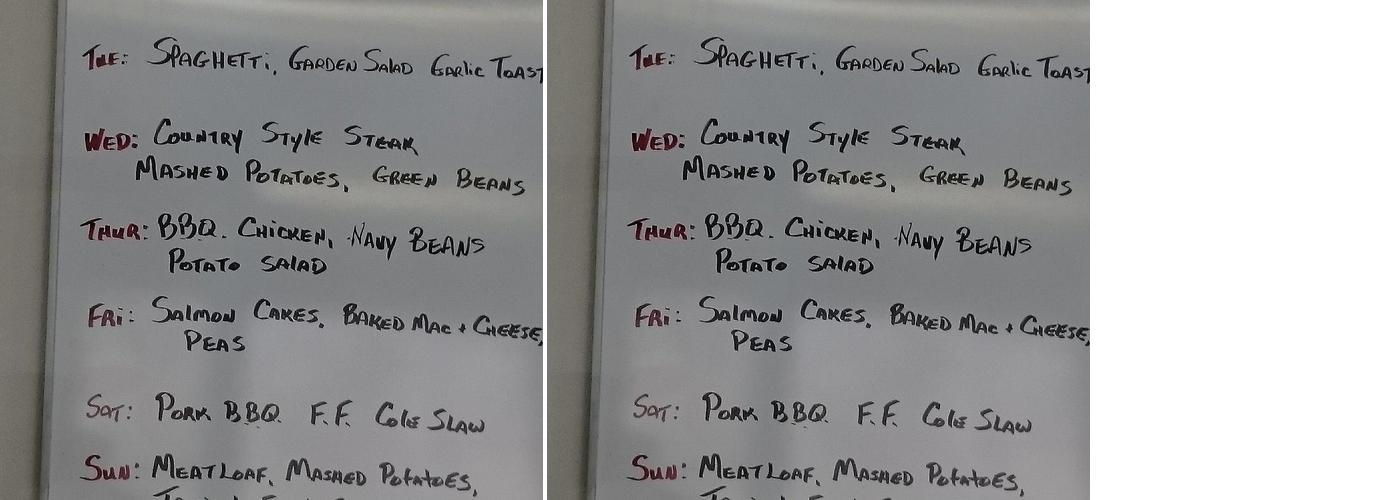 TUE: SPAGHETTi, GARDEN SAlAD GARlic TOAST
WED: COUNTRY STYlE STEAK
MASHED POTATOES, GREEN BEANS
THUR: BBQ. CHiCKEN, NAVY BEANS
POTATO SALAD
FRi: SAlmON CAKES, BAKED MAC + CHEESE,
PEAS
SAT: PORK BBQ F.F. COlE SLAW
SUN: MEATLOAF, MASHED POTATOES,
TUE: SPAGHETTi, GARDEN SAlAD GARlic TOAST
WED: COUNTRY STYlE STEAK
MASHED POTATOES, GREEN BEANS
THUR: BBQ. CHiCKEN, NAVY BEANS
POTATO SALAD
FRi: SAlmON CAKES, BAKED MAC + CHEESE,
PEAS
SAT: PORK BBQ F.F. COlE SLAW
SUN: MEATLOAF, MASHED POTATOES,